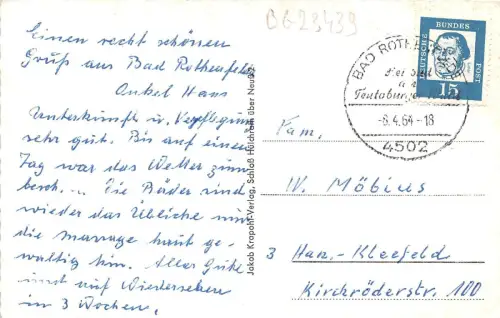 BG23439
Einen recht schönen
Gruß aus Bad Rothenfelde
Onkel Hans
Unterkunft u. Verpflegung
sehr gut. Bis auf einen
Tag war das Wetter zum
besch.... Die Bäder sind
wieder das Übliche nur
die Massage haut ge-
waltig hin. Alles Gute
und auf Wiedersehen
in 3 Wochen.
Jakob Kropohl-Verlag, Schloß Hülchrath über Neuß 2
DEUTSCHE BUNDES POST
15
BAD ROTHENFELDE
Teutoburger
-6.4.64-18
4502
Fam.
W. Möbius
3 Han.-Kleefeld
Kirchröderstr. 100